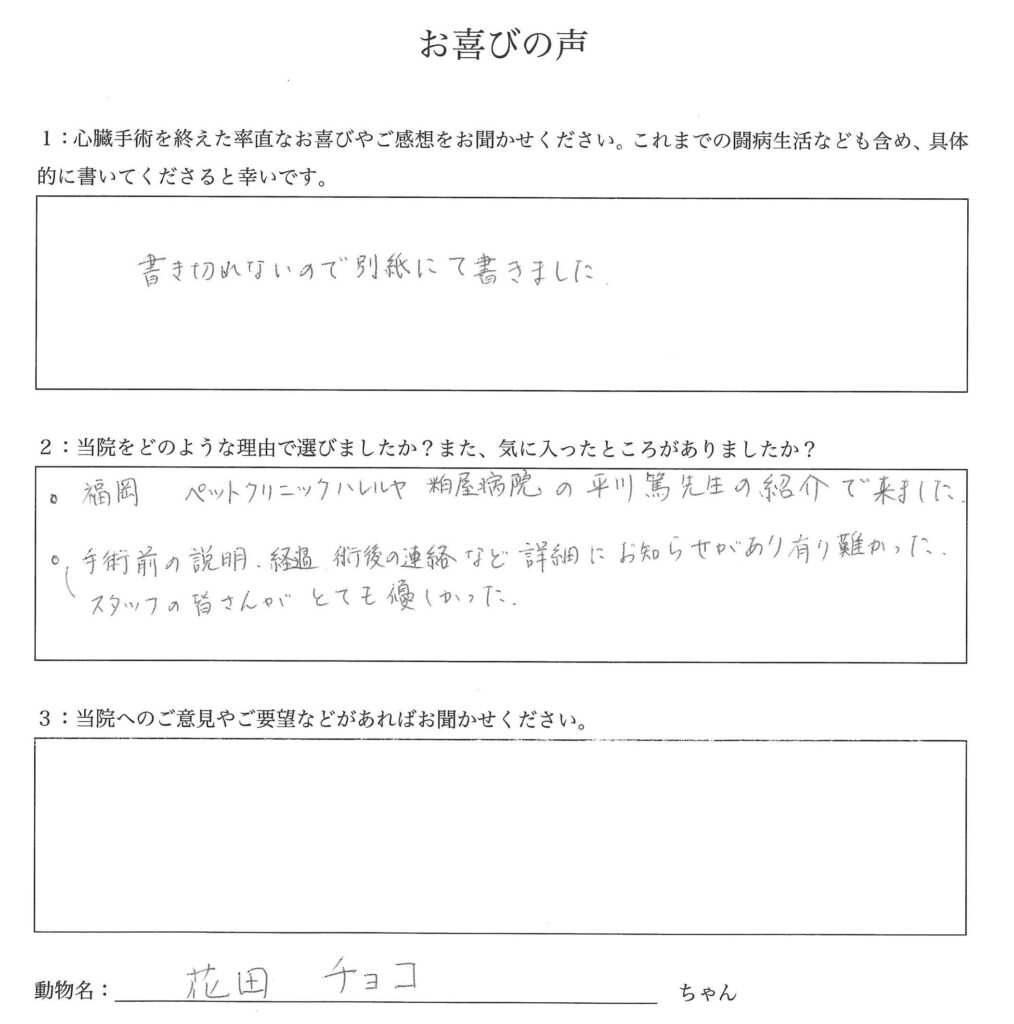 お喜びの声
1：心臓手術を終えた率直なお喜びやご感想をお聞かせください。これまでの闘病生活なども含め、具体
的に書いてくださると幸いです。
書き切れないので別紙にて書きました.
2：当院をどのような理由で選びましたか？また、気に入ったところがありましたか？
。福岡 ペットクリニックハレルヤ 粕屋病院の平川篤先生の紹介で来ました.
。手術前の説明.経過 術後の連絡など詳細にお知らせがあり有り難かった.
スタッフの皆さんがとても優しかった.
3：当院へのご意見やご要望などがあればお聞かせください。
動物名：花田 チョコ ちゃん